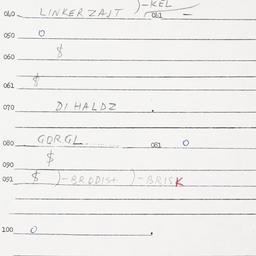 )-KEL
040 LINKERZAJT 081 -
050 O
$
060
061 $
070 DI HALDZ .
080 GORGL 081 O
090 $
091 $ )-BRODIS+ )-BRISK
100 O .